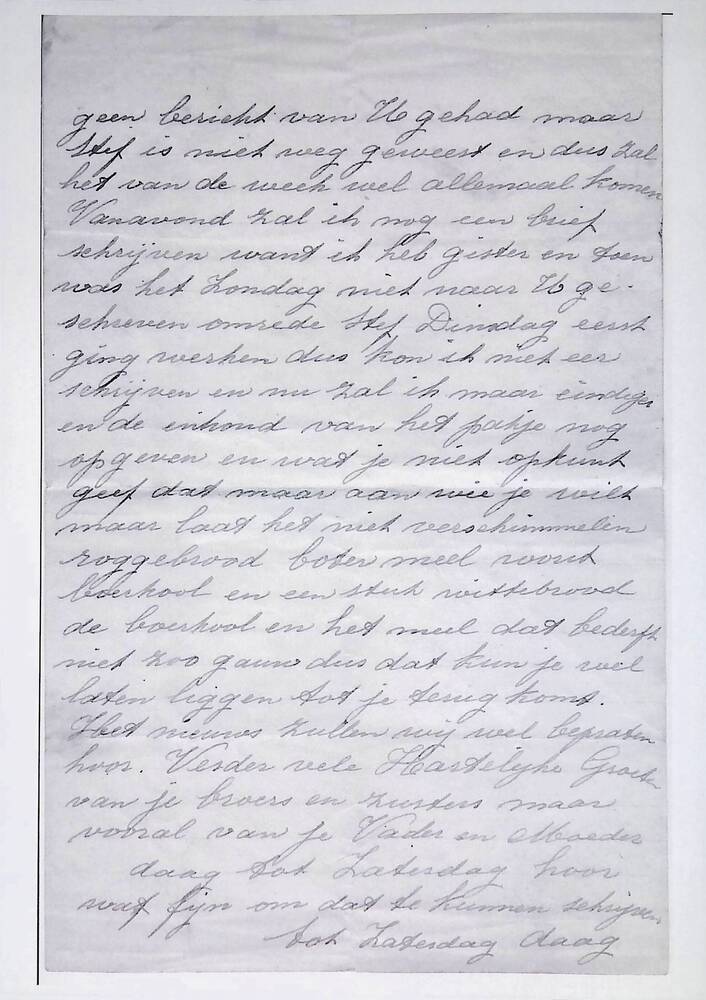 geen bericht van U gehad maar
Stef is niet weg geweest en dus zal
het van de week wel allemaal komen
Vanavond zal ik nog een brief
schrijven want ik heb gister en toen
was het Zondag niet naar U ge-
schreven omrede Stef Dinsdag eerst
ging werken dus kon ik niet eer
schrijven en nu zal ik maar eindigen
en de inhoud van het pakje nog
op geven en wat je niet opkunt
geef dat maar aan wie je wilt
maar laat het niet verschimmelen
roggebrood boter meel worst
boerkool en een stuk wittebrood
de boerkool en het meel dat bederft
niet zoo gauw dus dat kun je wel
laten liggen tot je terug komt.
Het nieuws zullen wij wel bepraten
hoor. Verder vele Hartelijke Groeten
van je broers en zusters maar
vooral van je Vader en Moeder
daag tot Zaterdag hoor
wat fijn om dat te kunnen schrijven
tot Zaterdag daag